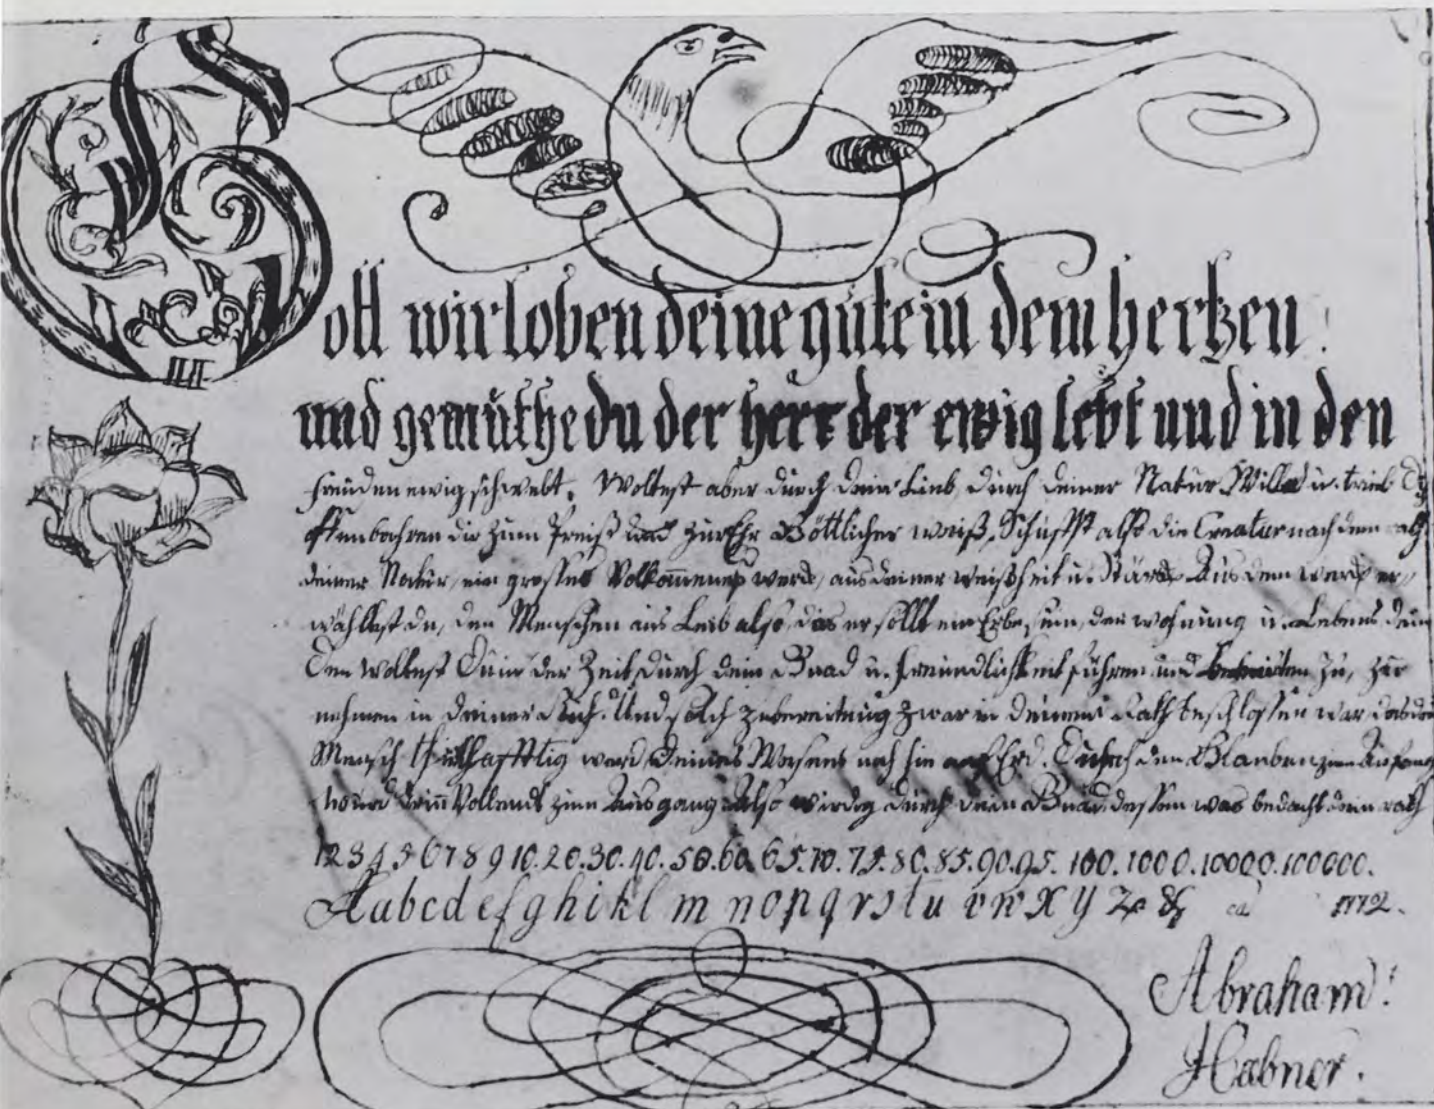 Gott wir loben deine güte in dem hertzen
und gemüthe du der herr der ewig lebt und in den
freuden ewig schwebt. Woltest aber durch dein Lieb, durch deiner Natur Will u. trieb
offenbahren dir zum Preiß und zur Ehr Göttlicher weiß. Schuffst also die Creatur nach dem
deiner Natur, ein grosses Volkommenes werck, aus deiner weißheit u. Stärck. Aus dem werck er
wähltest du, den Menschen aus Leib also, das er sollt ein Erbe sein, der wohnung u. Lebens dein
Den woltest Du in der Zeit, durch dein Gnad u. freundlichkeit führen und zu, zu
nehmen in deiner Und solch zubereitung zwar in deinem Rath beschlossen war das der
Mensch theilhafftig werd, deines Wesens noch hie auf Erd. Durch den Glauben zum Anfang
Vollends zum Ausgang. Also würdig durch dein Gnad, dessen was bedacht dein rath
1 2 3 4 5 6 7 8 9 10. 20. 30. 40. 50. 60. 65. 70. 75. 80. 85. 90. 95. 100. 1000. 10000. 100000.
A a b c d e f g h i k l m n o p q r s t u v w x y z &c 1772.
Abraham
Habner.